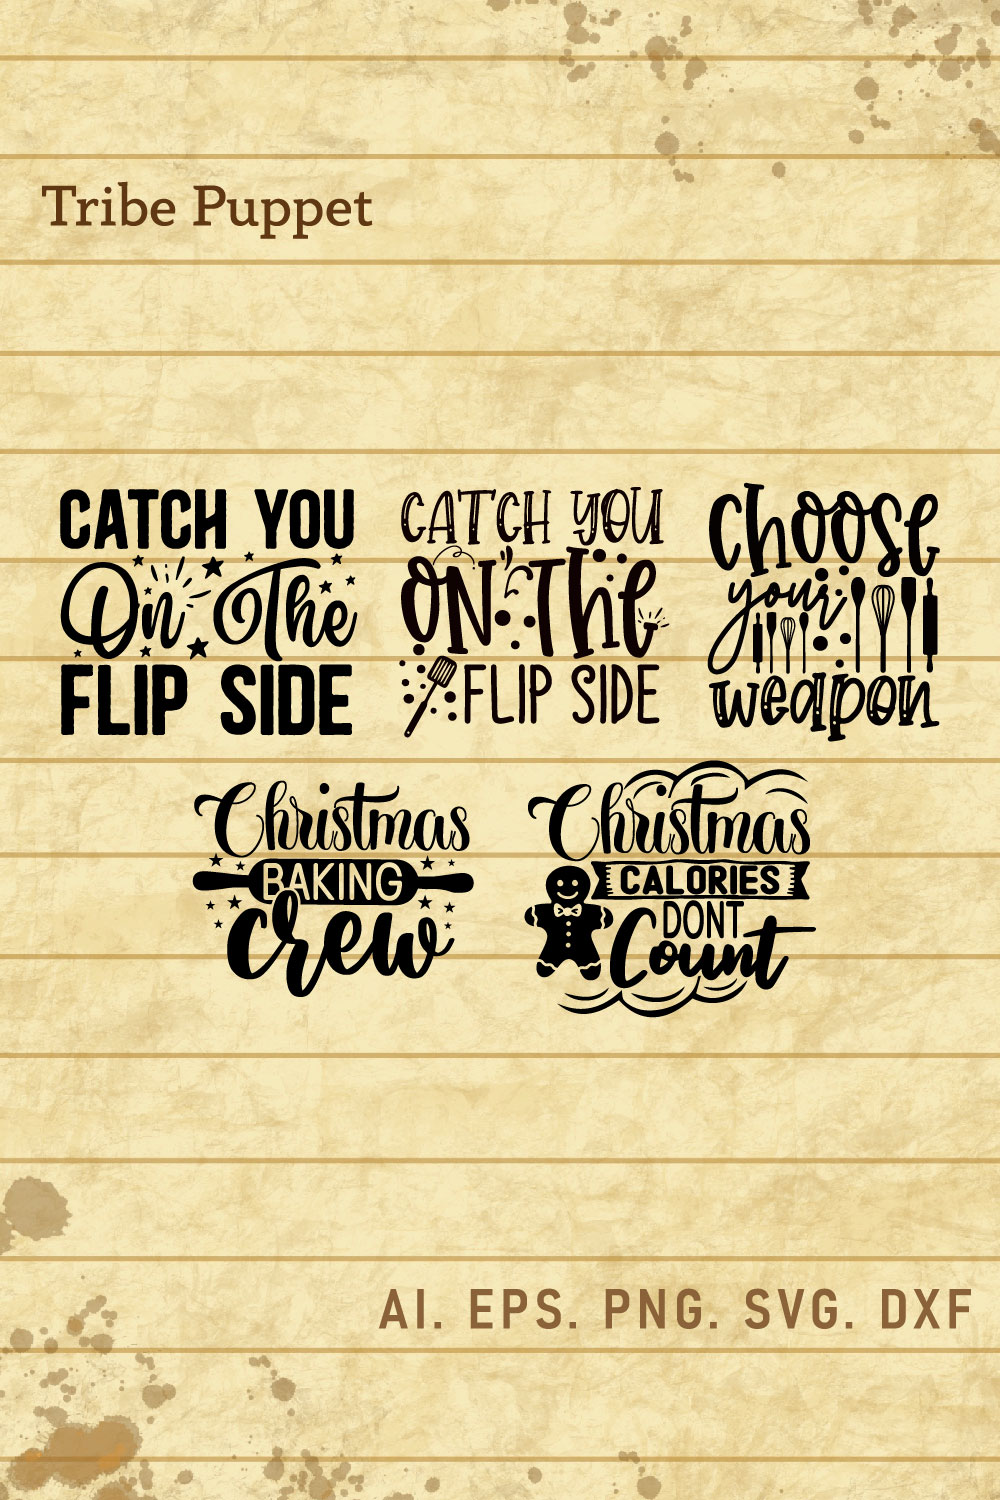 Tribe Puppet
CATCH YOU
On The
FLIP SIDE
CATCH YOU
ON The
FLIP SIDE
choose
your
weapon
Christmas
BAKING
crew
Christmas
CALORIES
DONT
Count
AI. EPS. PNG. SVG. DXF